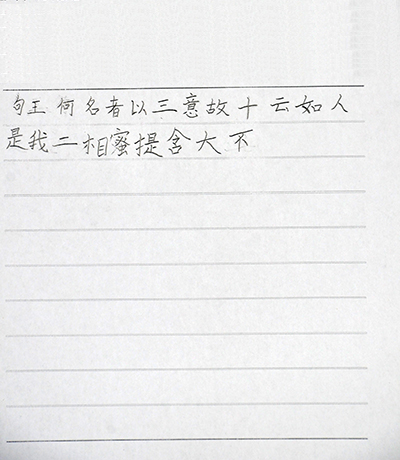 句王何名者以三意故十云如人
是我二相蜜提含大不